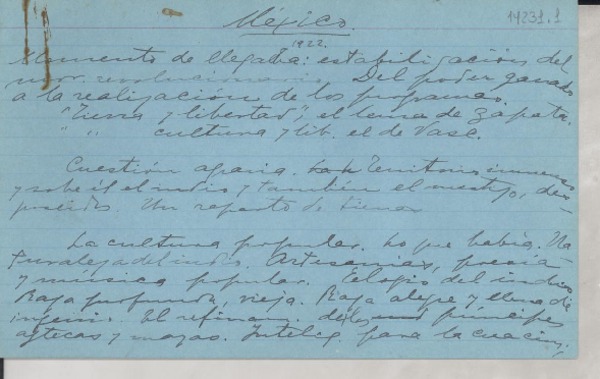 México.
14231.1
1922.
Momento de llegada: estabilización del
mov. revolucionario. Del poder ganado
a la realización de los programas.
"Tierra y libertad", el lema de Zapata.
" " cultura y lib. el de Vasc.
Cuestión agraria. Territorio inmenso
y sobre él el indio y también el mestizo, des-
poseídos. Un reparto de tierras
La cultura popular. Lo que había. Na-
turaleza del indio. Artesanías, poesía
y música popular. Elogio del indio
Raza profunda, vieja. Raza alegre y llena de
ingenio. El refinam. de los príncipes
aztecas y mayas. Intelig. para la creación,